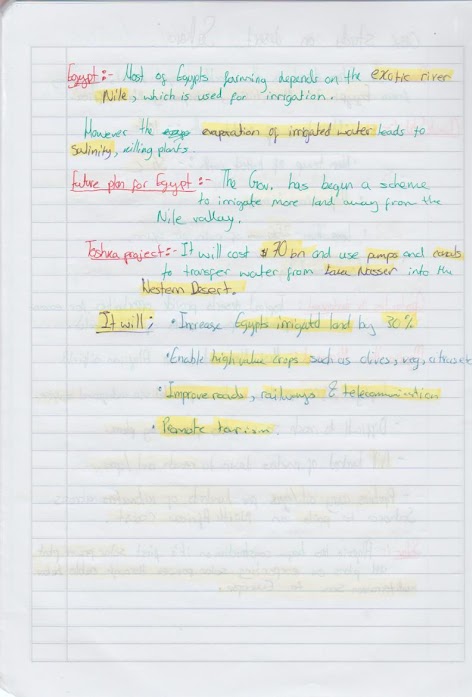 Egypt :- Most of Egypts farming depends on the exotic river
Nile, which is used for irrigation.
However the evaporation of irrigated water leads to
Salinity, killing plants.
Future plan for Egypt :- The Gov. has begun a scheme
to irrigate more land away from the
Nile valley.
Toshka project :- It will cost $70 bn and use pumps and canals
to transfer water from Lake Nasser into the
Western Desert.
It will : • Increase Egypts irrigated land by 30%
• Enable high value crops such as olives, veg, citrus etc
• Improve roads, railways & telecommunication
• Promote tourism.